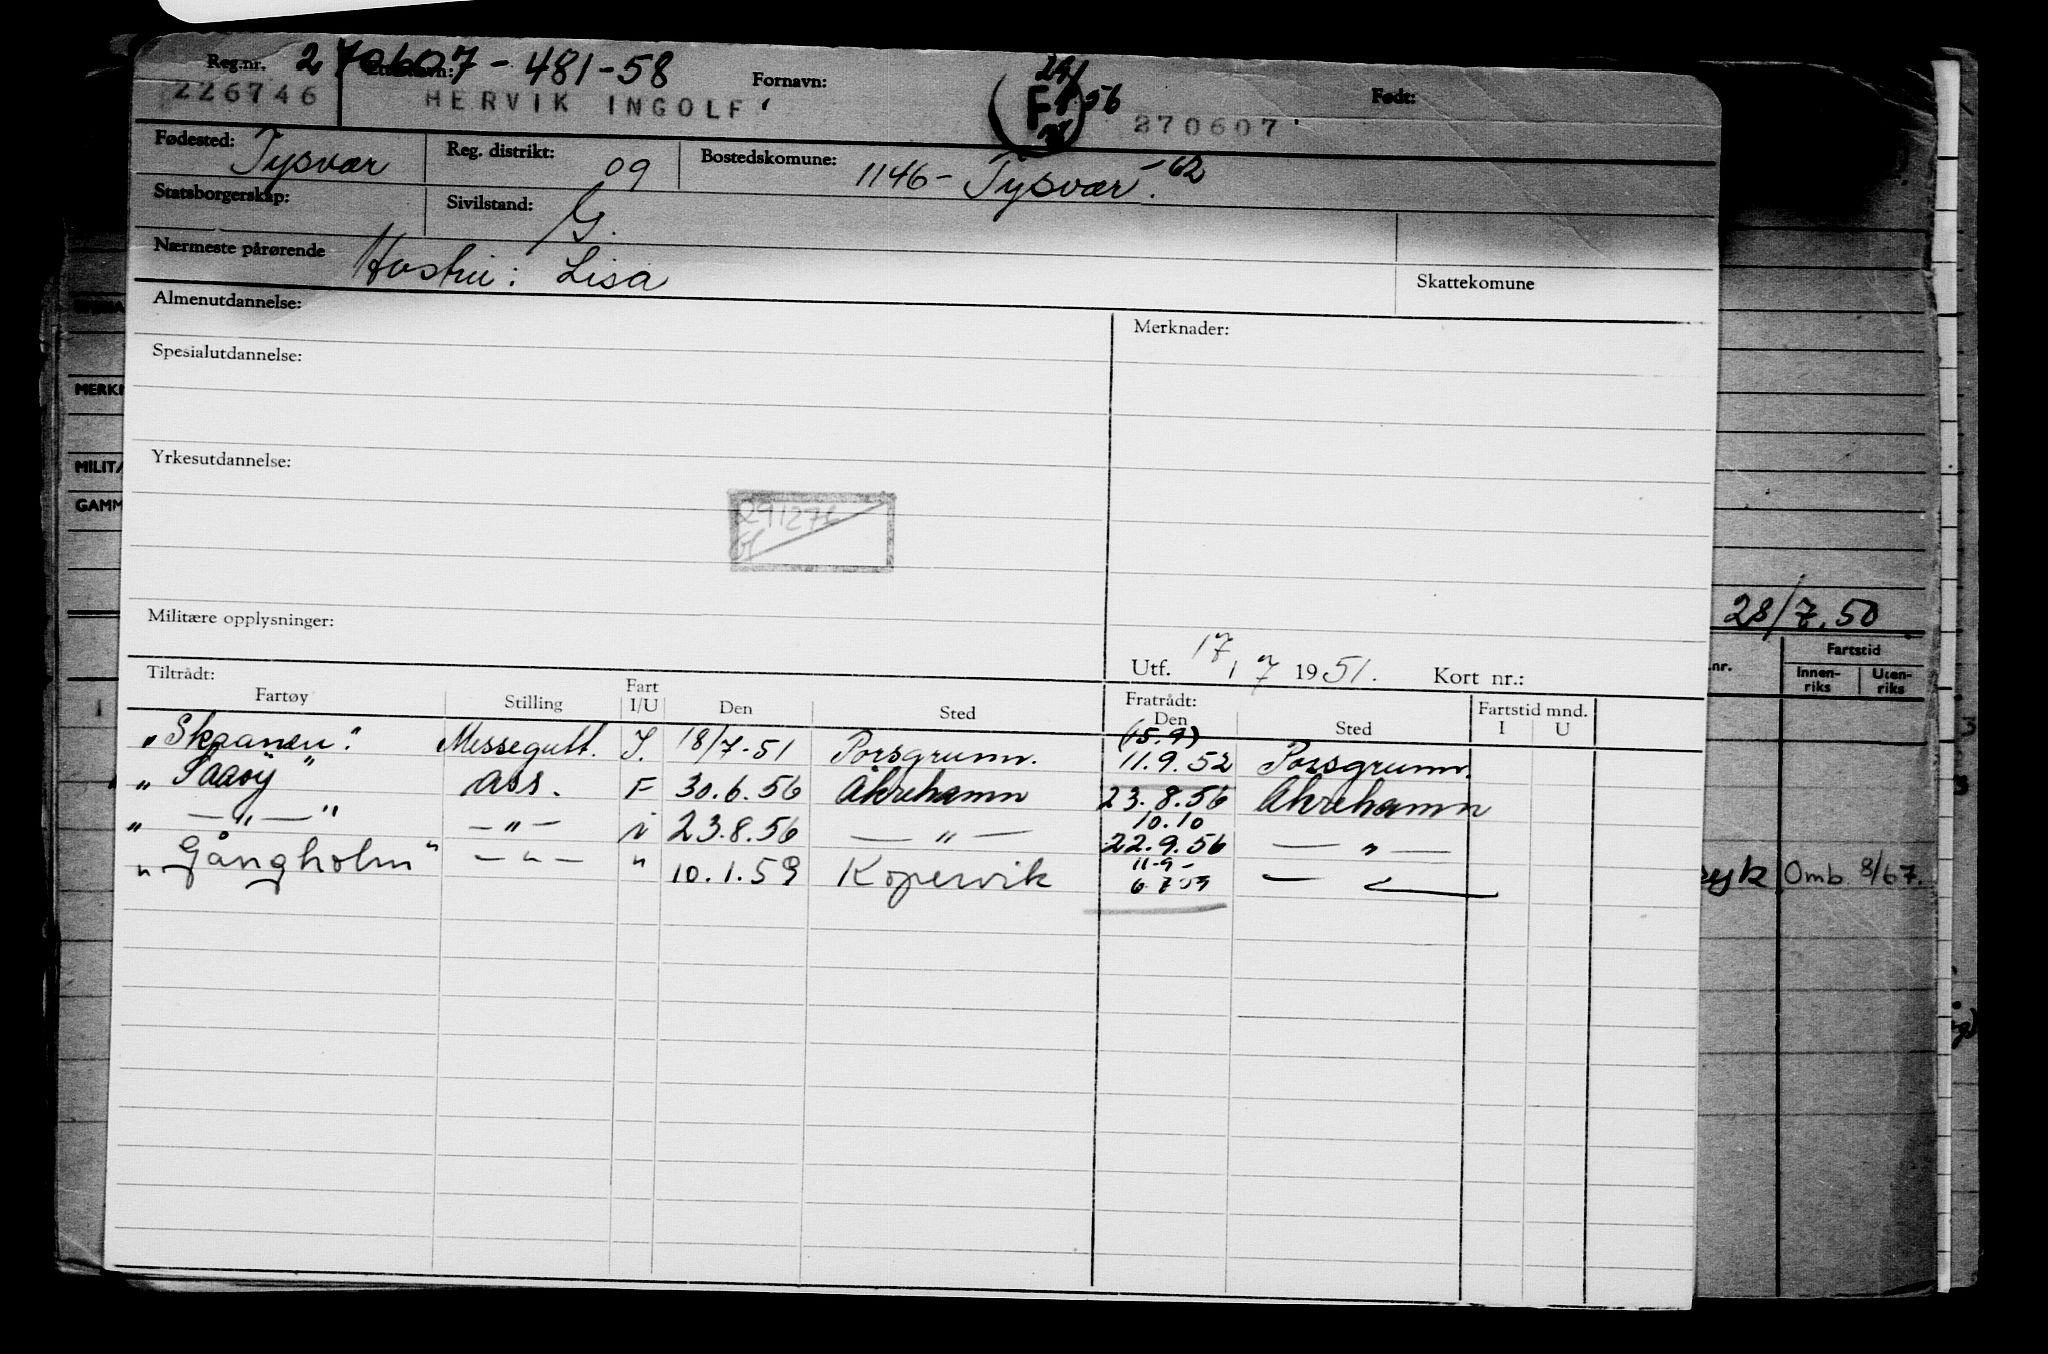 Reg.nr. 270607-481-58 Fornavn: 29/ 56 Født:
226746 HERVIK INGOLF F 270607
Fødested: Tysvær Reg. distrikt: 09 Bostedskomune: 1146- Tysvær. -62
Statsborgerskap: Sivilstand: G.
Nærmeste pårørende Hustru: Lisa Skattekomune
Almenutdannelse: Merknader:
Spesialutdannelse:
MERK
Yrkesutdannelse:
MILIT
GAMM
Militære opplysninger:
28/7.50
Utf. 17 / 7 1951. Kort nr.:
.nr. Fartstid
Innen-riks Uten-riks
Tiltrådt: Fratrådt:
Fartøy Stilling Fart I/U Den Sted Den Sted Fartstid mnd. I U
"Skaanen". Messegutt. I. 18/7-51 Porsgrunn. (15.9) 11.9.52 Porsgrunn.
" Saaøy " ass. F 30.6.56 Åkrehamn 23.8.56 Åkrehamn
" — " — " — " — i 23.8.56 — " — 10.10 22.9.56 — " —
" Gångholm " — " — " 10.1.59 Kopervik 11-9- 6.7.59 — " —
Omb. 8/67.